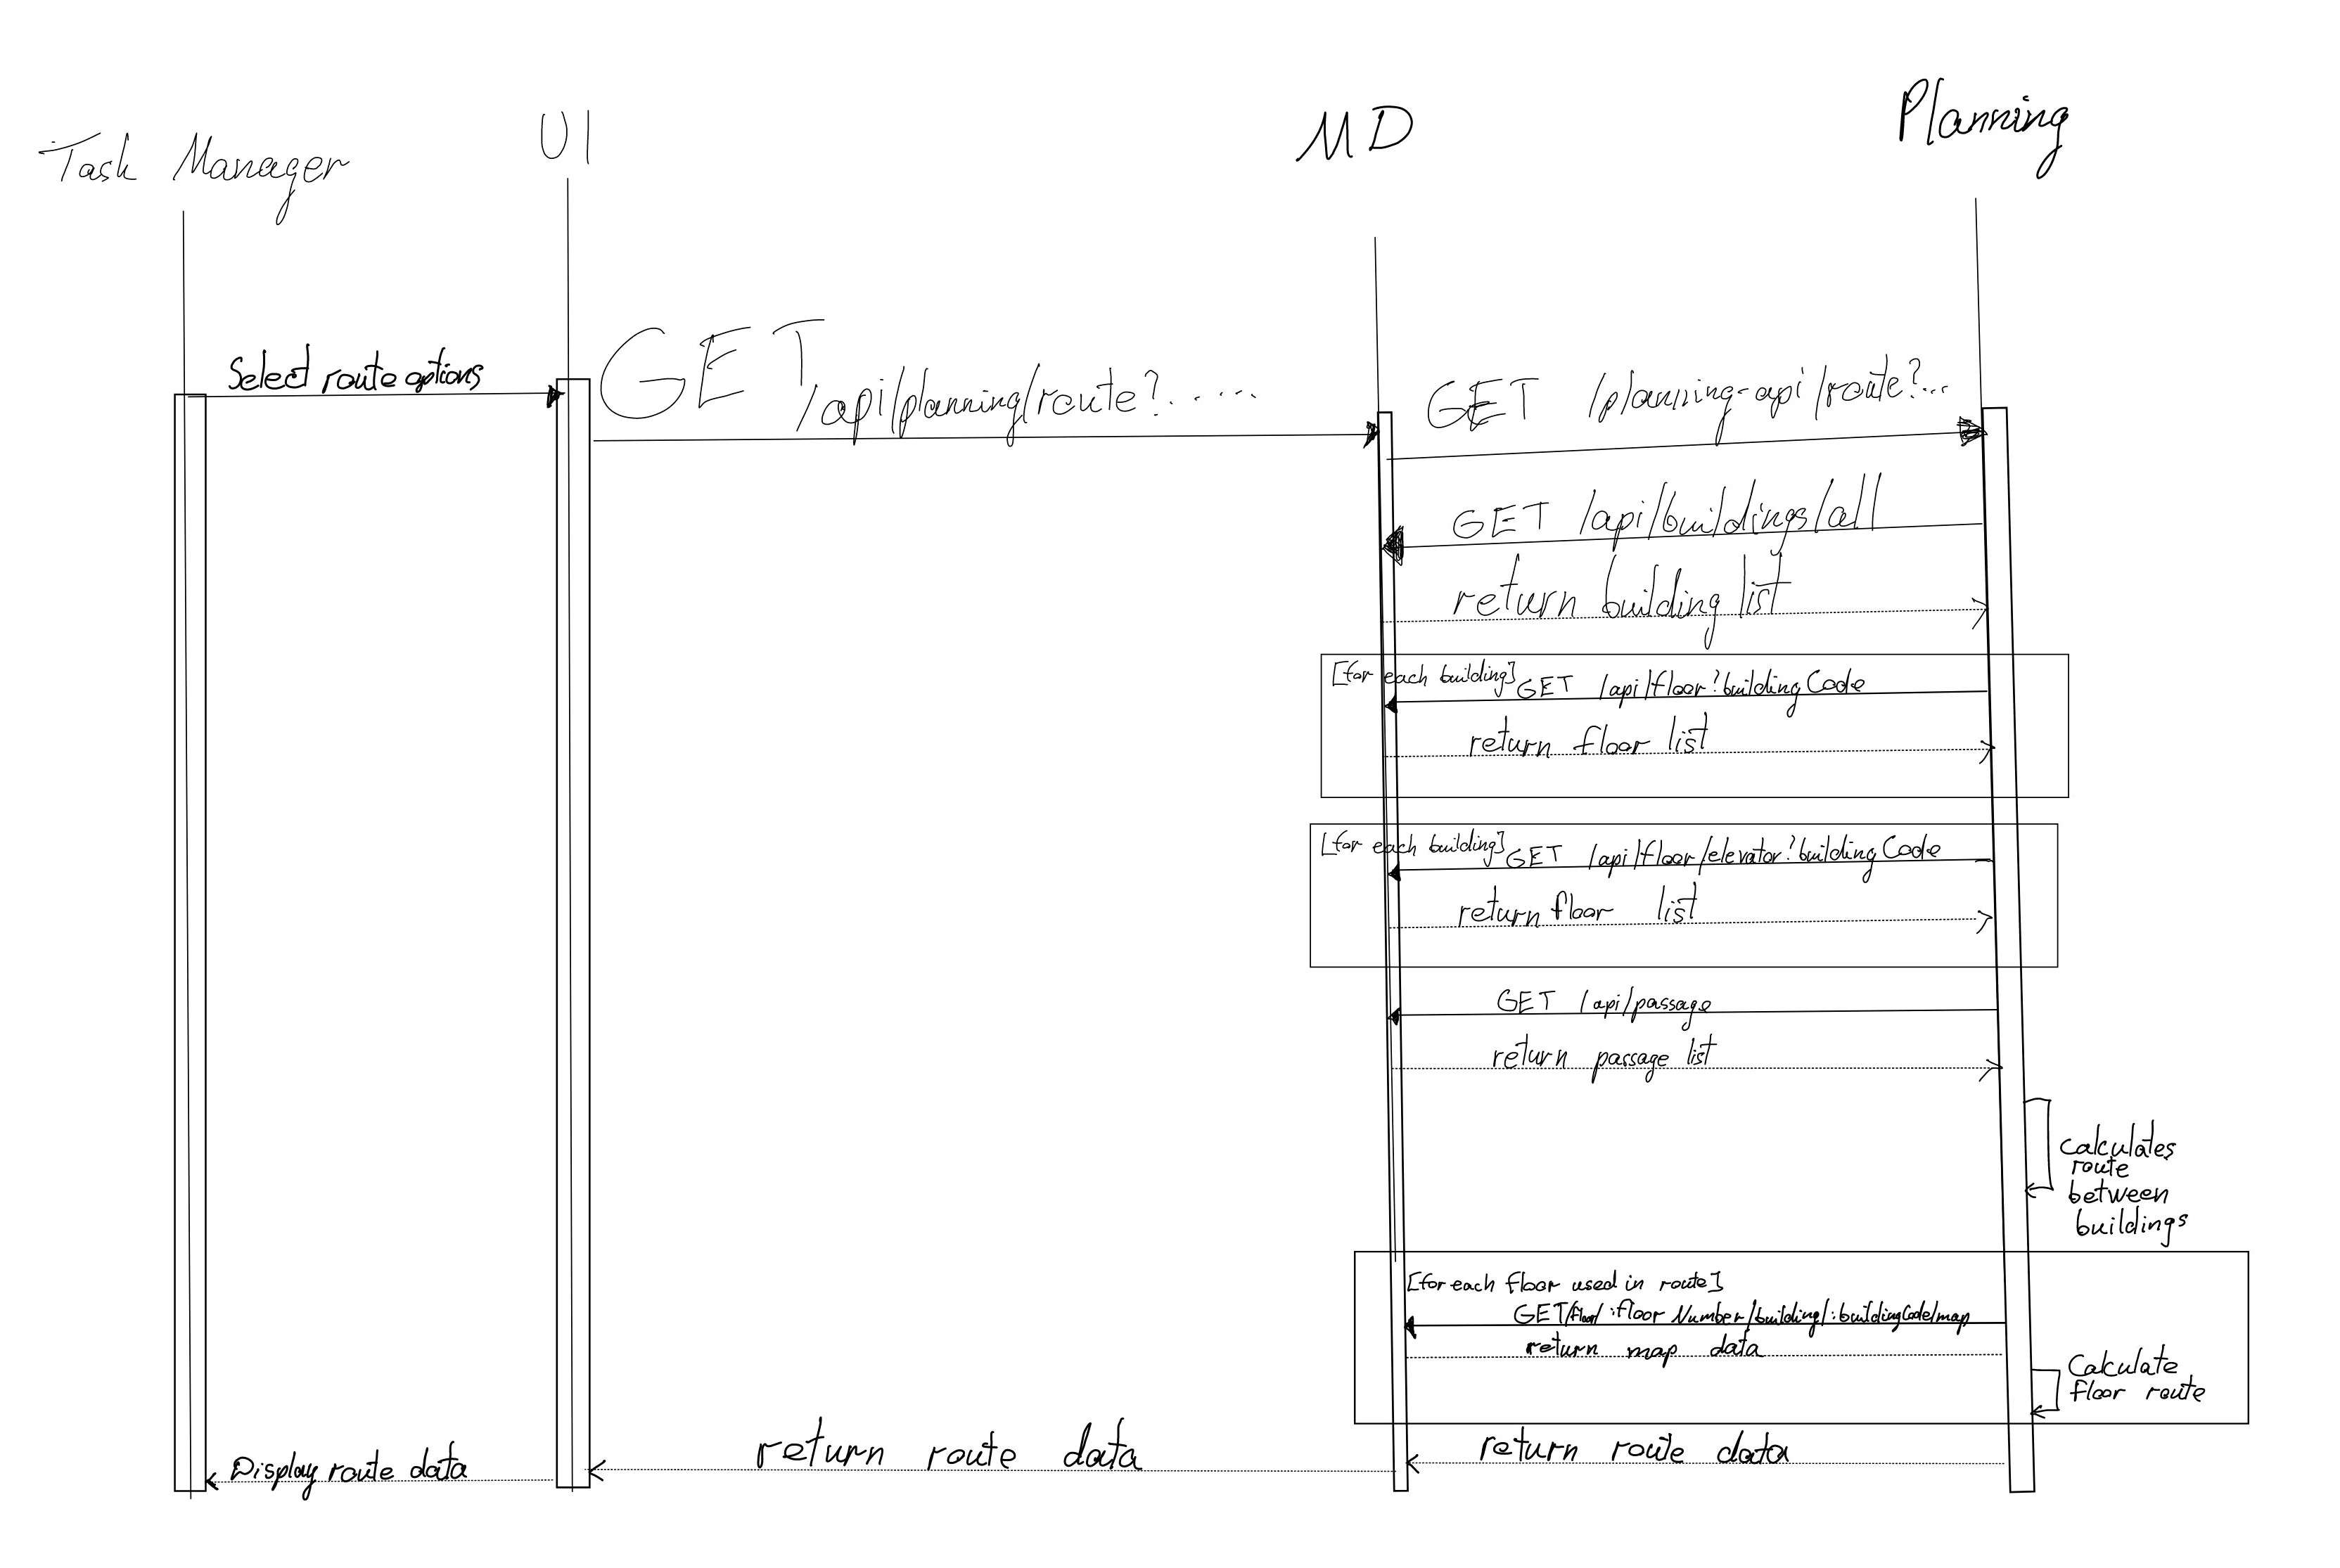 Task Manager
UI
MD
Planning
Select route options
GET
/api/planning/route?.....
GET /planning-api/route?...
GET /api/buildings/all
return building list
[for each building] GET /api/floor?buildingCode
return floor list
[for each building] GET /api/floor/elevator?buildingCode
return floor list
GET /api/passage
return passage list
calculates
route
between
buildings
[for each floor used in route]
GET/floor/:floorNumber/building/:buildingCode/map
return map data
Calculate
floor route
return route data
return route data
Display route data